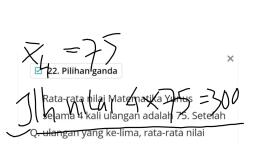 x̄₄ = 75
22. Pilihan ganda
Jlh nilai 4 x 75 = 300
Rata-rata nilai Matematika Yunus
selama 4 kali ulangan adalah 75. Setelah
ulangan yang ke-lima, rata-rata nilai